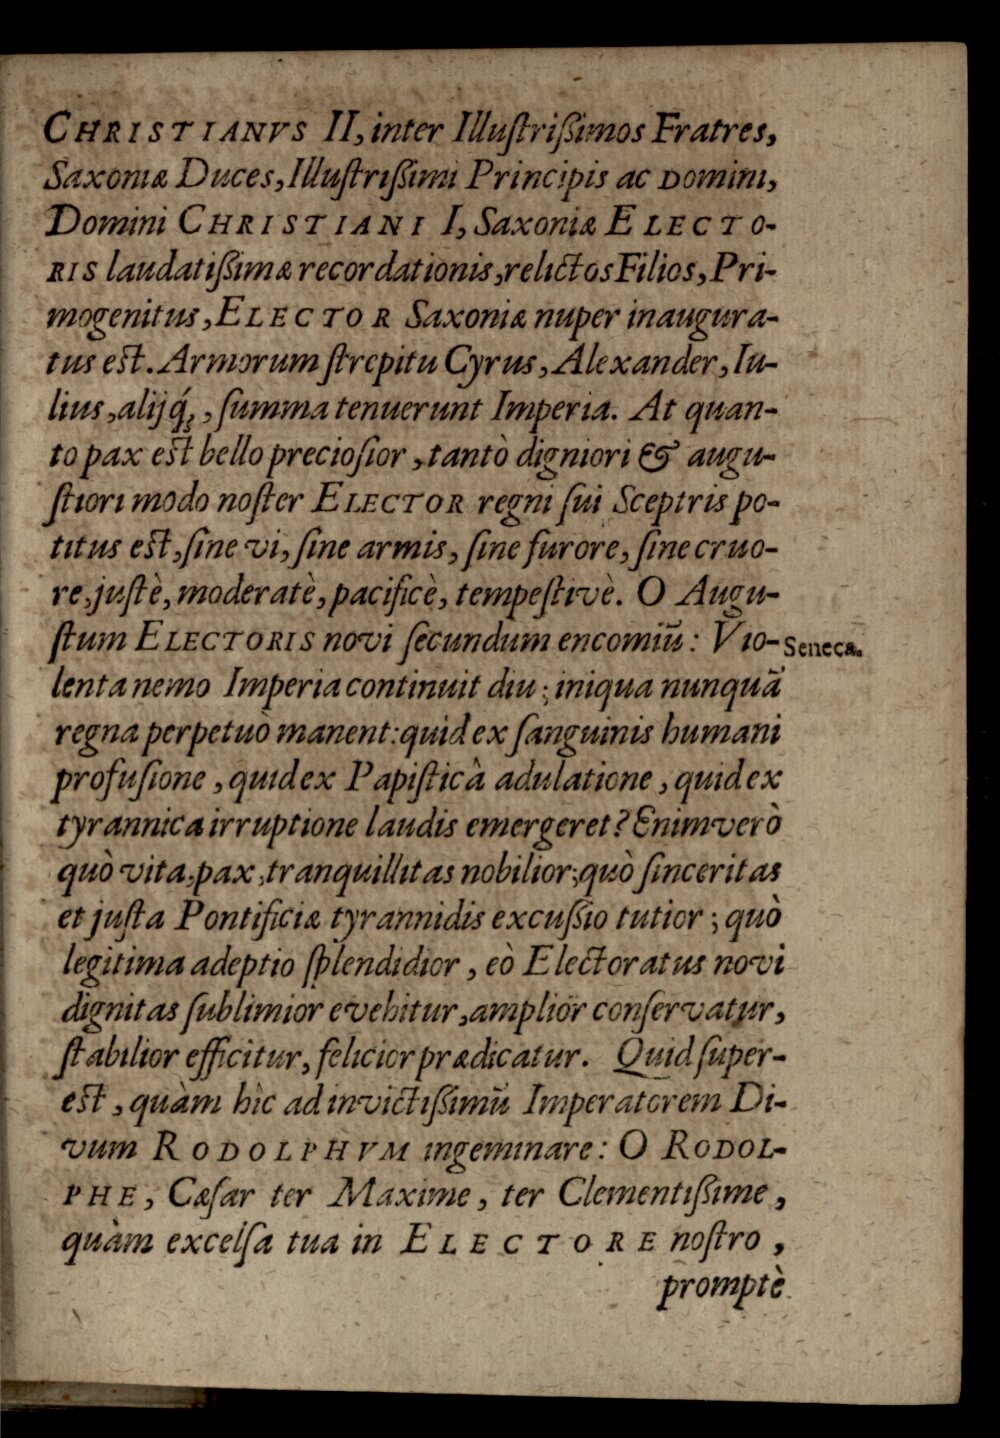 CHRISTIANVS II, inter Illuſtriſſimos Fratres,
Saxoniæ Duces, Illuſtriſſimi Principis ac Domini,
Domini CHRISTIANI I, Saxoniæ ELECTO-
RIS laudatiſſimæ recordationis, relictos Filios, Pri-
mogenitus, ELECTOR Saxoniæ nuper inaugura-
tus est. Armorum ſtrepitu Cyrus, Alexander, Iu-
lius, alijq́;, ſumma tenuerunt Imperia. At quan-
to pax est bello precioſior, tantò digniori & augu-
ſtiori modo noſter ELECTOR regni ſui Sceptris po-
titus est, ſine vi, ſine armis, ſine furore, ſine cruo-
re, juſtè, moderatè, pacificè, tempeſtivè. O Augu-
ſtum ELECTORIS novi ſecundum encomiū: Vio-
Seneca.
lenta nemo Imperia continuit diu; iniqua nunquā
regna perpetuò manent: quid ex ſanguinis humani
profuſione, quid ex Papiſticâ adulatione, quid ex
tyrannica irruptione laudis emergeret? Enimverò
quò vita, pax, tranquillitas nobilior; quò ſinceritas
et juſta Pontificiæ tyrannidis excuſſio tutior; quò
legitima adeptio ſplendidior, eò Electoratus novi
dignitas ſublimior evehitur, amplior conſervatur,
ſtabilior efficitur, felicior prædicatur. Quid ſuper-
est, quàm hìc ad invictiſſimū Imperatorem Di-
vum RODOLPHVM ingeminare: O RODOL-
PHE, Cæſar ter Maxime, ter Clementiſſime,
quàm excelſa tua in ELECTORE noſtro,
promptè